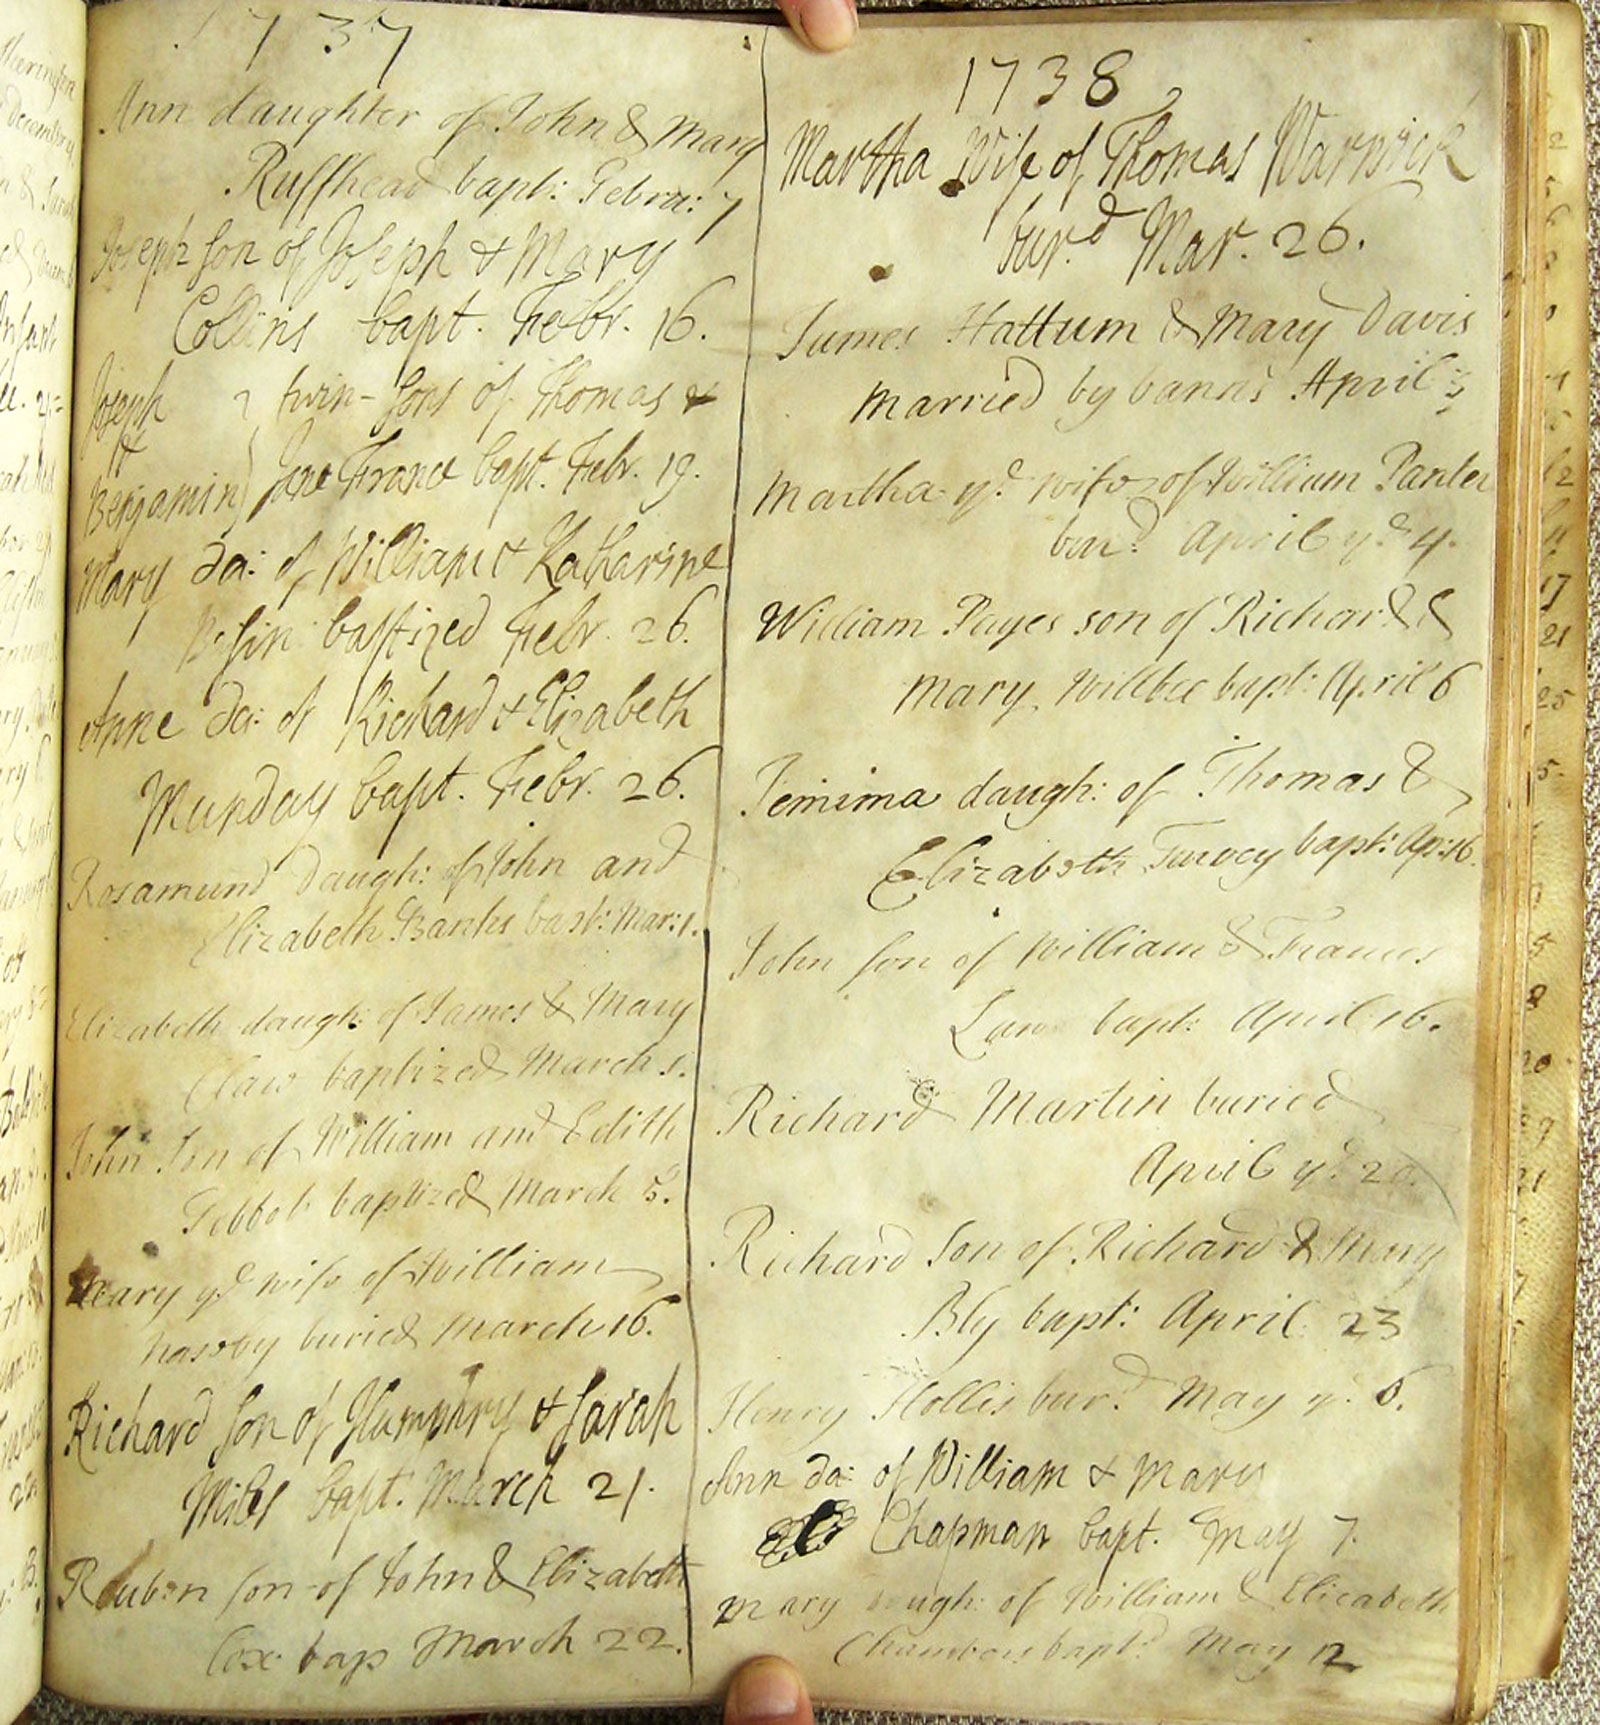 1737
Ann daughter of John & Mary
Ruffhead bapt: Febru: 7
Joseph son of Joseph & Mary
Collins bapt. Febr. 16.
Joseph twin-sons of Thomas &
&
Benjamin) Jane France bapt. Febr. 19.
Mary da: of William & Katharine
baptized Febr. 26.
Anne da: of Richard & Elizabeth
Munday bapt. Febr. 26.
Rosamund Daugh: of John and
Elizabeth Banks bapt: Mar: 1.
Elizabeth daugh: of James & Mary
Claw baptized March 5.
John Son of William and Edith
Tebbot baptized March 5.
Mary ye wife of William
buried March 16.
Richard son of Humphry & Sarah
Miles bapt. March 21.
Reuben son of John & Elizabeth
Cox bap March 22.
1738
Martha Wife of Thomas Warwick
bur.d Mar. 26.
James Hattum & Mary Davis
married by banns April 3
Martha ye wife of William Panter
burd April ye 4.
William Payes son of Richard &
Mary Willbee bapt: April 6
Jemima daugh: of Thomas &
Elizabeth Turvey bapt: Ap: 16.
John son of William & Frances
Law bapt: April 16.
Richard Martin buried
April ye 20.
Richard Son of Richard & Mary
Bly bapt: April 23
Henry Hollis burd May ye 6.
Ann da: of William & Mary
Chapman bapt. May 7.
Mary daugh: of William & Elizabeth
Chambers baptd May 12